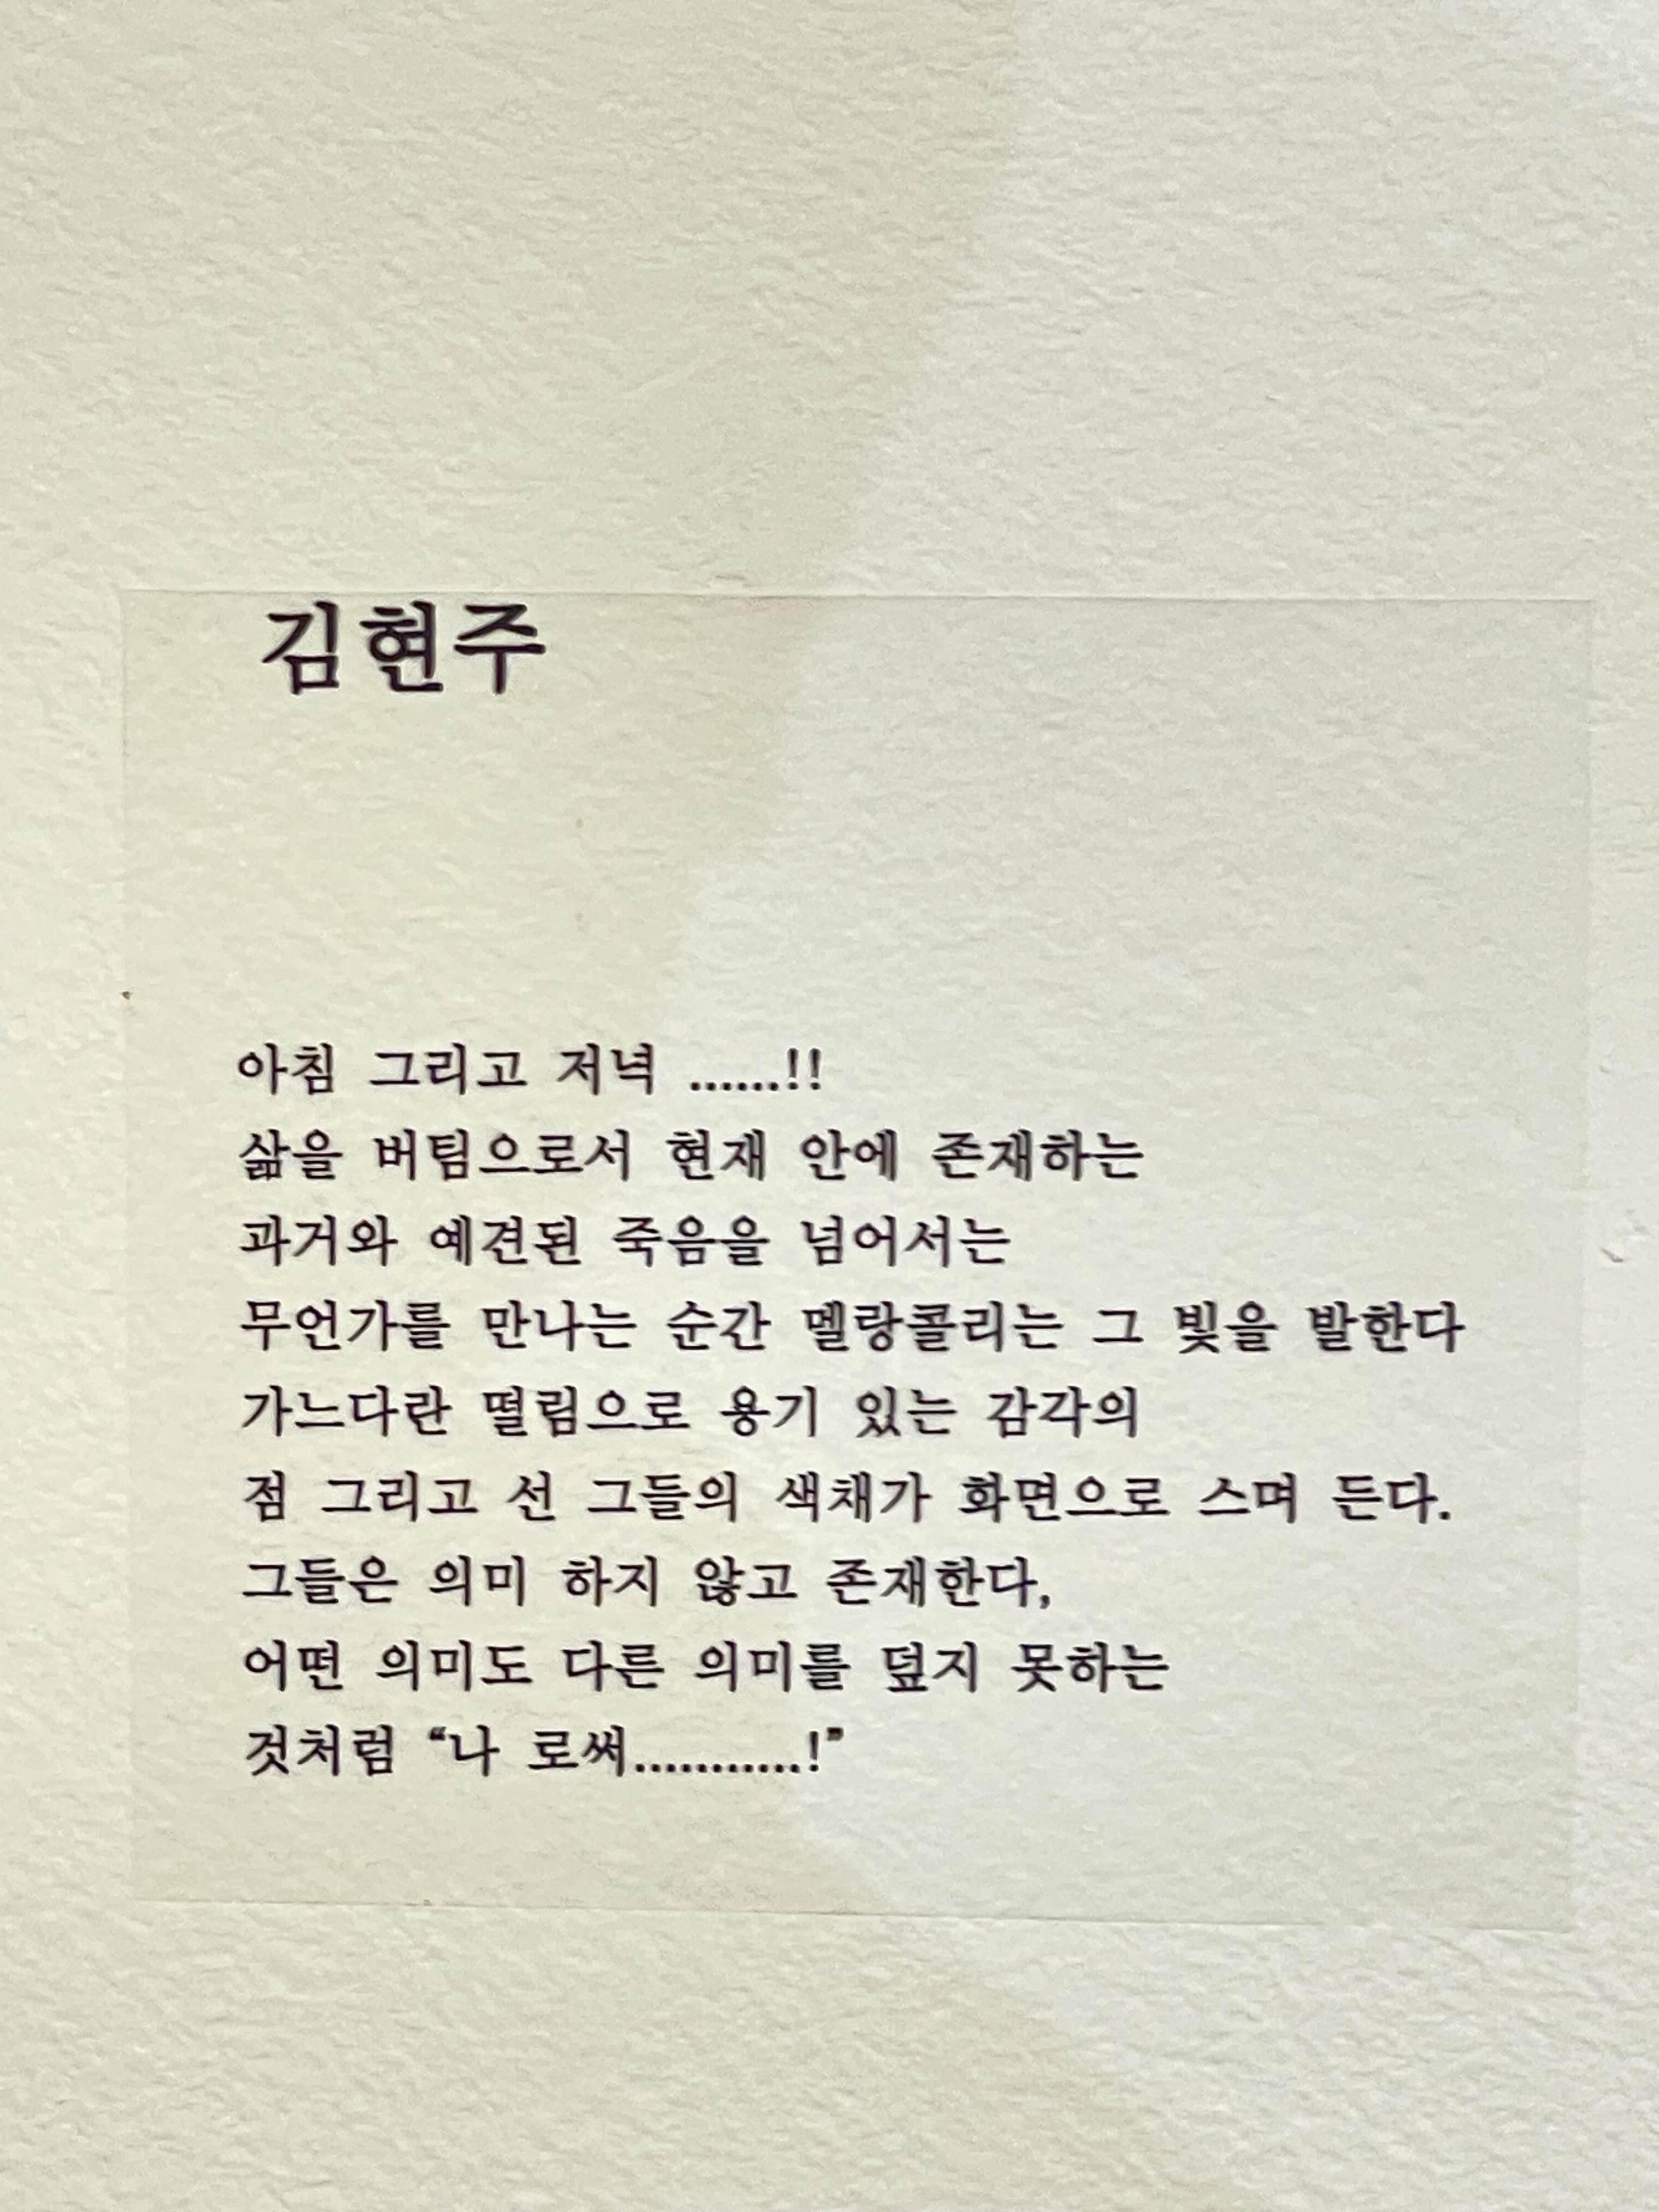 김현주
아침 그리고 저녁 ......!!
삶을 버팀으로서 현재 안에 존재하는
과거와 예견된 죽음을 넘어서는
무언가를 만나는 순간 멜랑콜리는 그 빛을 발한다
가느다란 떨림으로 용기 있는 감각의
점 그리고 선 그들의 색채가 화면으로 스며 든다.
그들은 의미 하지 않고 존재한다,
어떤 의미도 다른 의미를 덮지 못하는
것처럼 “나 로써...........!”